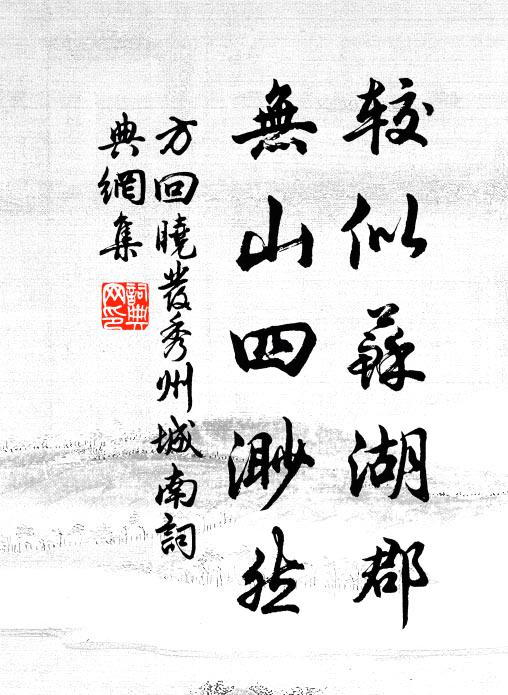 較似蘇湖郡
無山四渺然
方回曉發秀州城南詞
典網集
詞典
网印